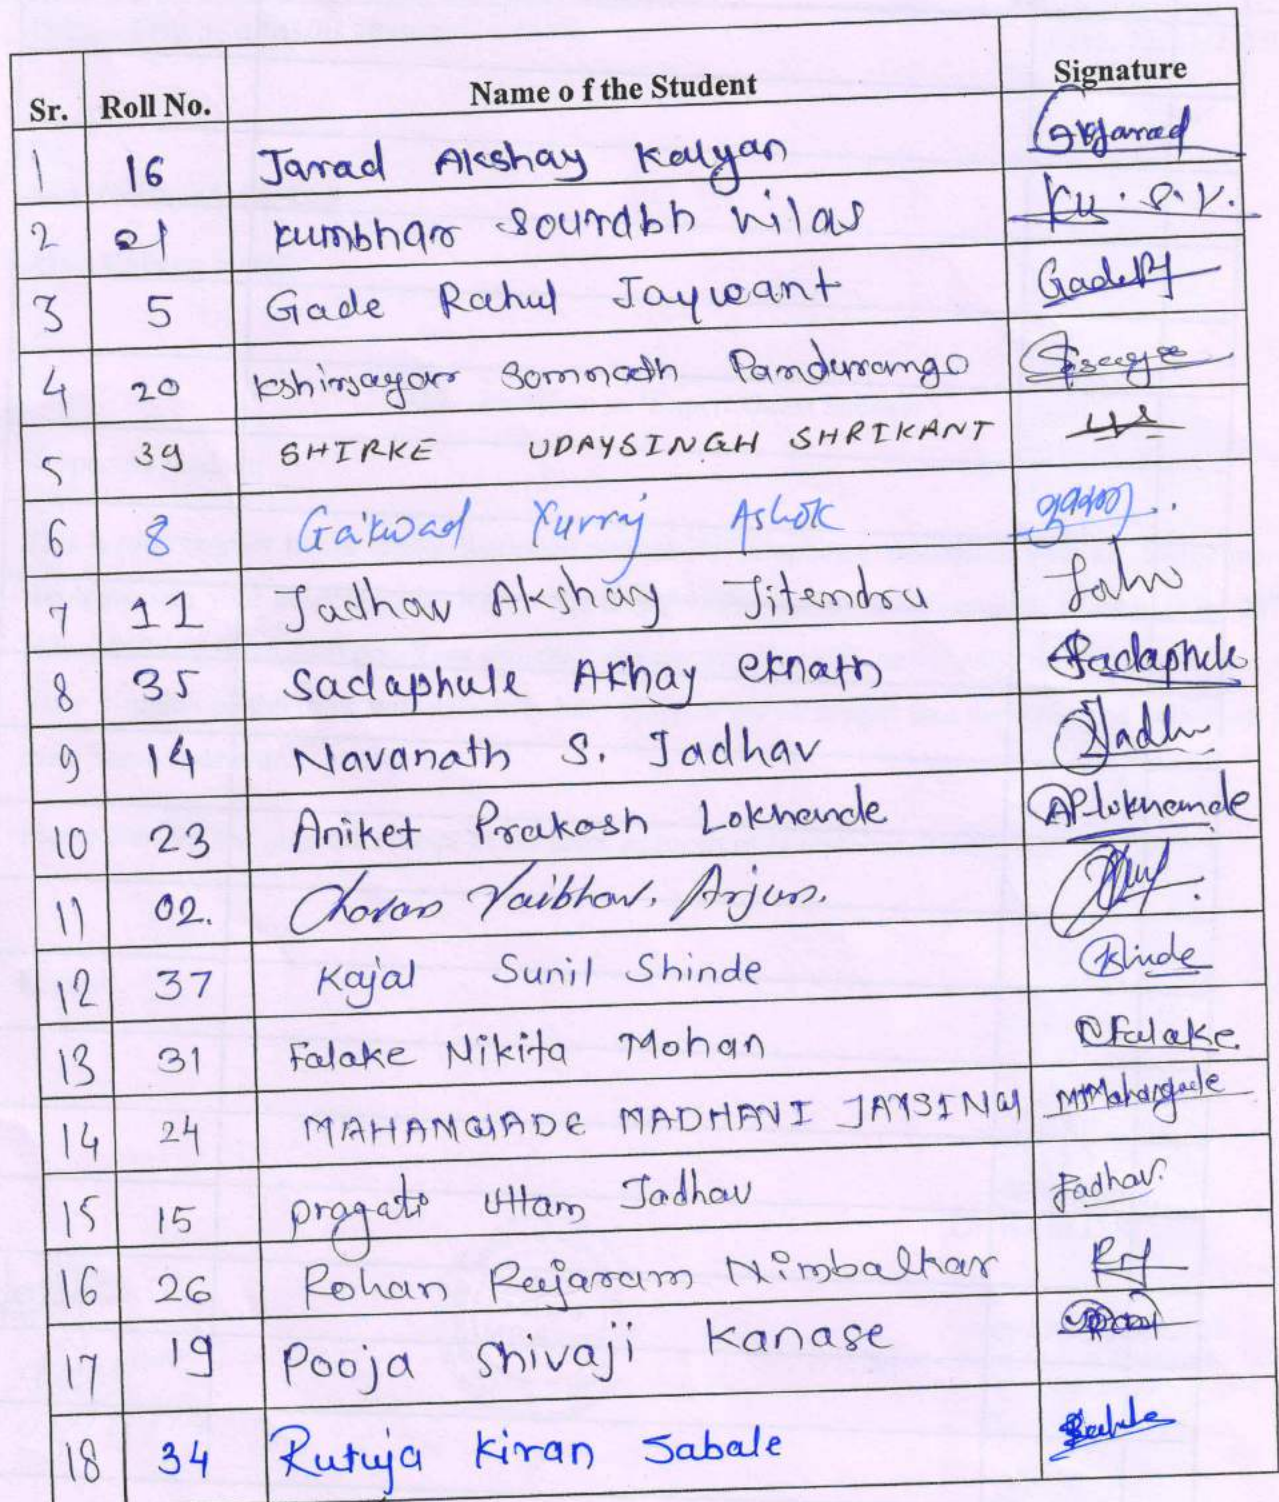 Sr. Roll No. Name o f the Student Signature
1 16 Jarad Akshay Kalyan
2 21 Kumbhar Sourabh Vilas Ku. S. V.
3 5 Gade Rahul Jaywant
4 20 Kshirsagar Somnath Pandurang
5 39 SHIRKE UDAYSINGH SHRIKANT
6 8 Gaikwad Yuvraj Ashok
7 11 Jadhav Akshay Jitendra
8 35 Sadaphule Akhay eknath Sadaphule
9 14 Navanath S. Jadhav
10 23 Aniket Prakash Lokhande AP Lokhande
11 02. Chavan Vaibhav. Arjun.
12 37 Kajal Sunil Shinde
13 31 Falake Nikita Mohan N Falake.
14 24 MAHANGADE MADHAVI JAYSING MJMahangade
15 15 pragati Uttam Jadhav Jadhav.
16 26 Rohan Rajaram Nimbalkar
17 19 Pooja Shivaji Kanase
18 34 Rutuja Kiran Sabale